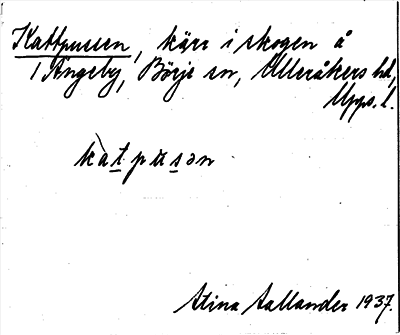 Kattpussen, kärr i skogen å
1 Ängeby, Börje sn, Ulleråkers hd,
Upps. l.
kàtpusən
Stina Sallander 1937.